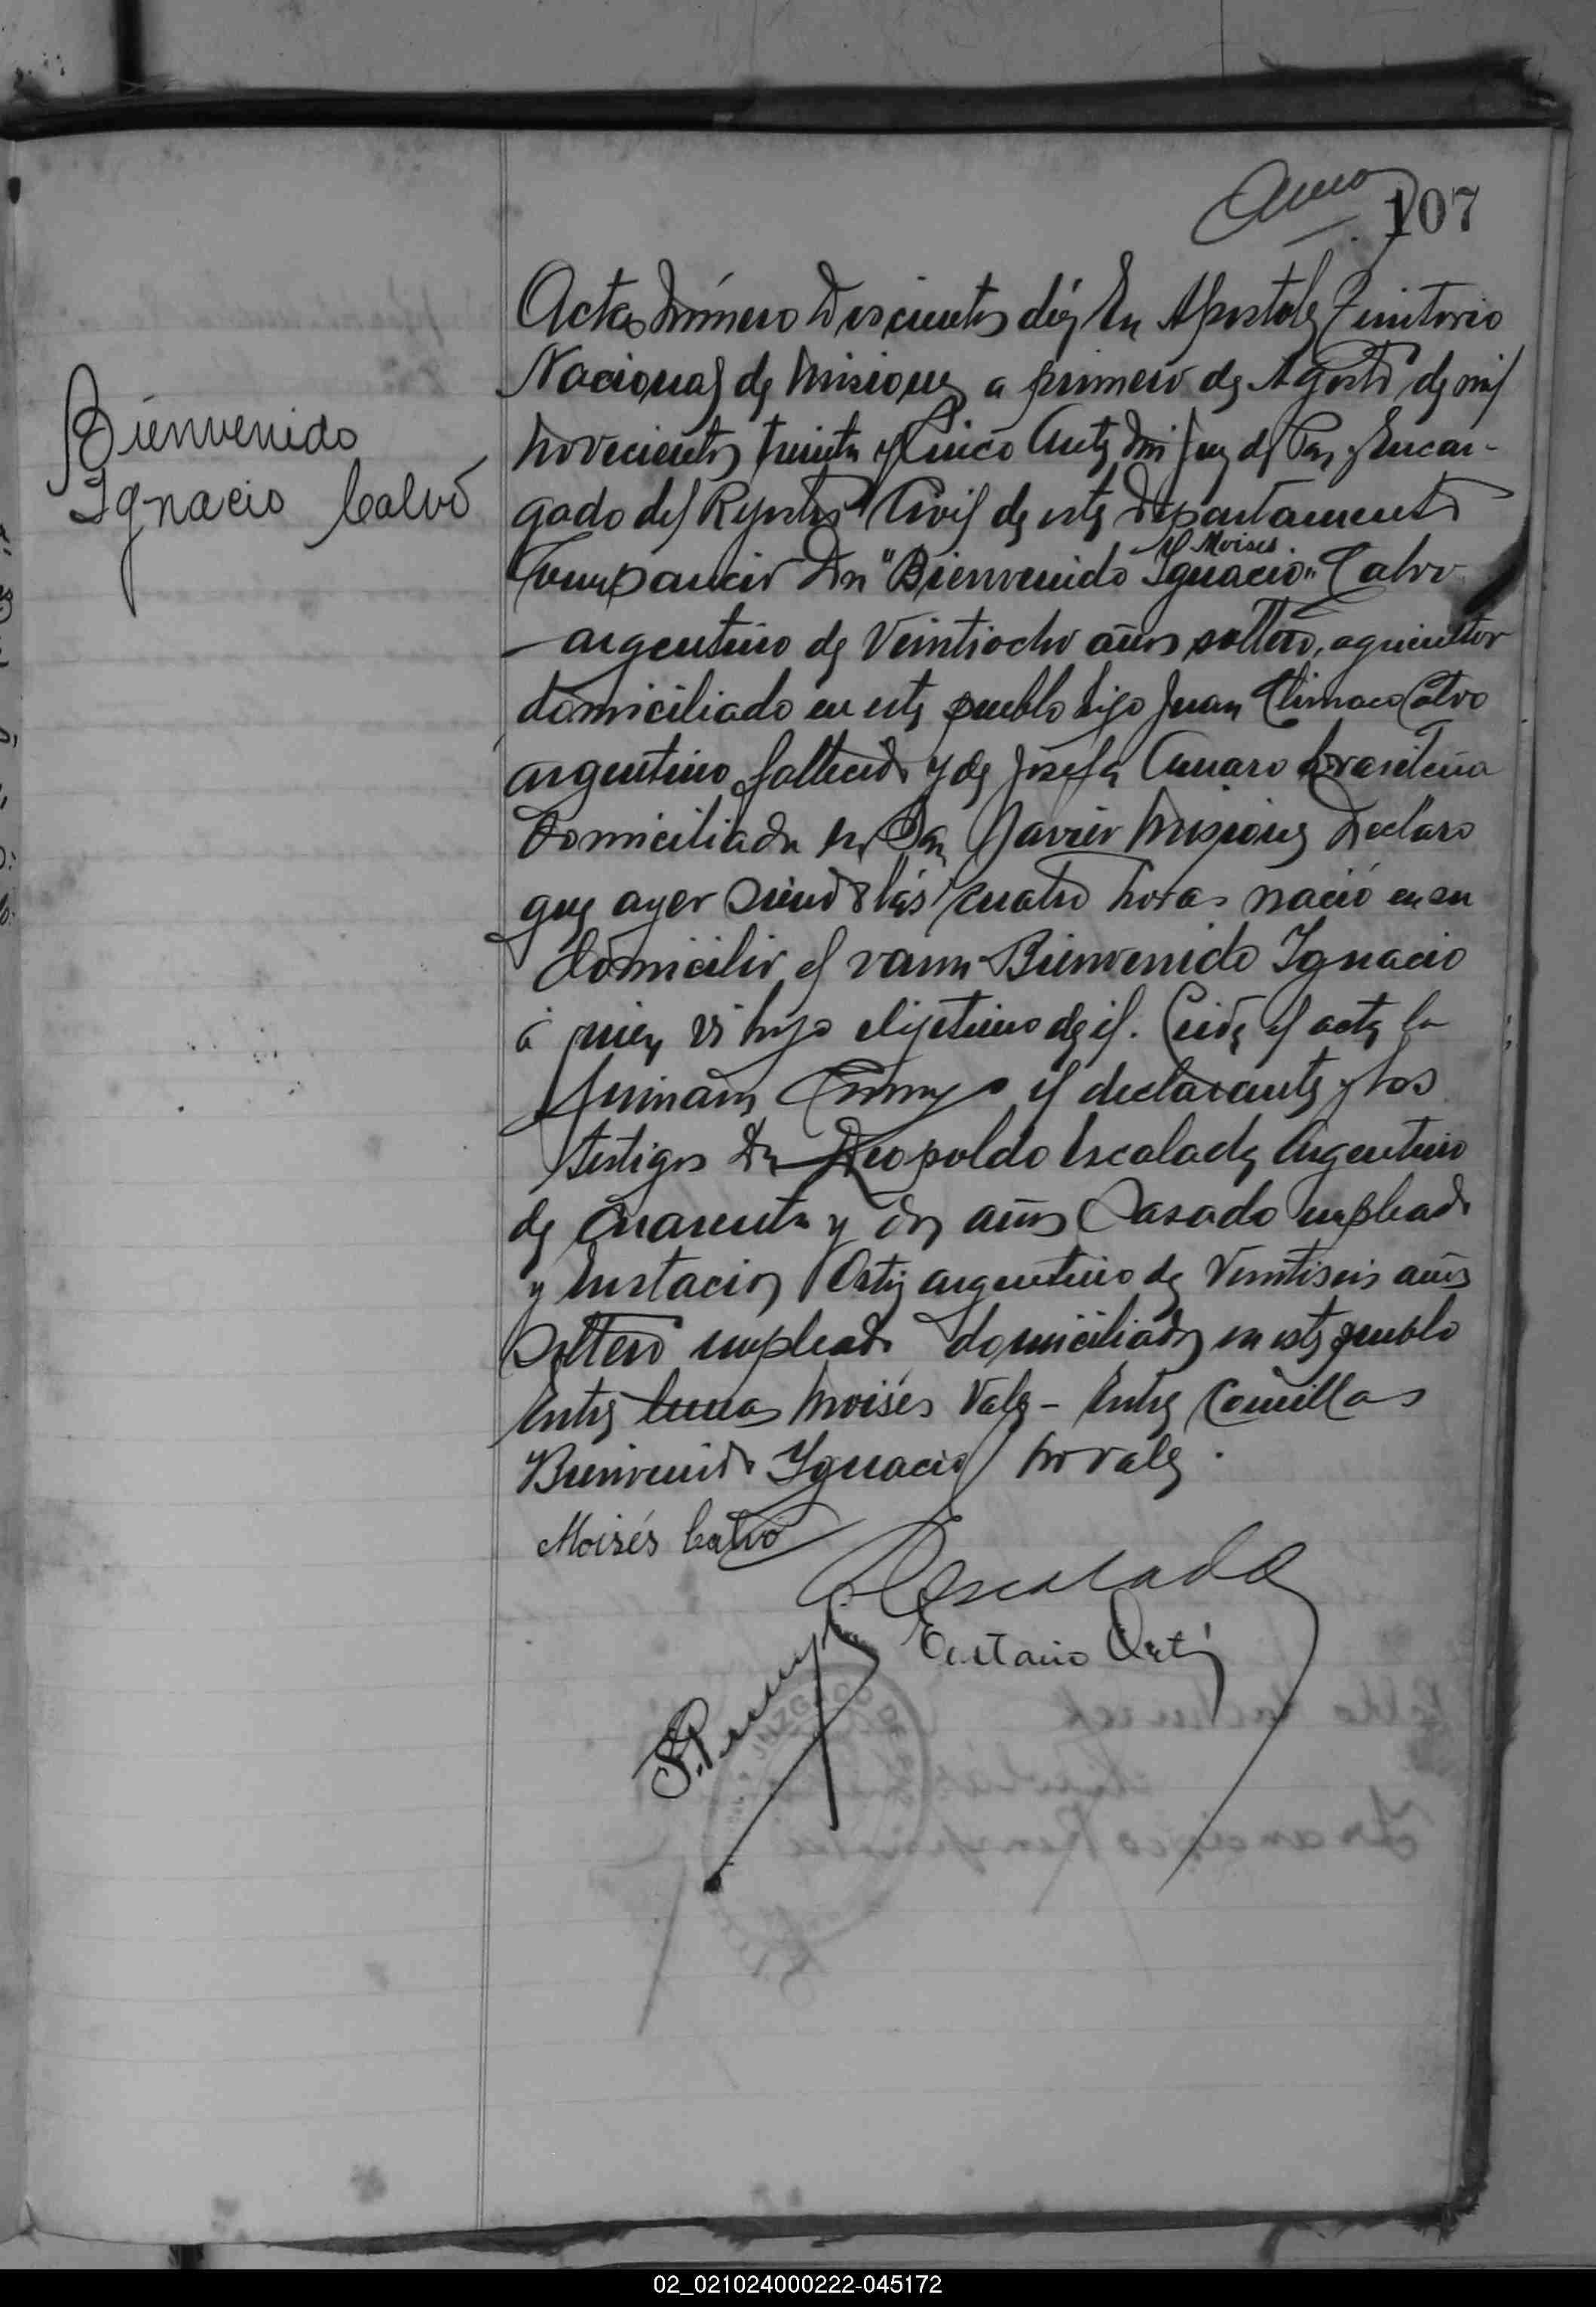 107
Acta número Doscientos diéz En Apostoles Territorio
Nacional de Misiones a primero de Agosto de mil
novecientos treinta y Cinco Ante mi Juez de Paz y Encar-
gado del Registro Civil de este Departamento
Moises
Compareció Dn "Bienvenido Ignacio" Calvo
argentino de Veintiocho años soltero, agricultor
domiciliado en este pueblo hijo Juan Climaco Calvo
argentino fallecido y de Josefa Amaro brasileña
Domiciliada en San Javier Misiones Declaro
que ayer siendo las cuatro horas nació en su
domicilio el varon Bienvenido Ignacio
á quien es hijo de el. Leida el acta la
firmaron el declarante y los
testigos Dn Leopoldo Escalada Argentino
de Cuarenta y dos años Casado empleado
y Eustacio Ortiz argentino de Veintiseis años
Soltero empleado domiciliados en este pueblo
Entre lineas Moisés Vale - Entre Comillas
Bienvenido Ignacio no vale.
Bienvenido
Ignacio Calvo
Moisés Calvo
Escalada
Eustacio Ortiz
JUZGADO DE
02_021024000222-045172